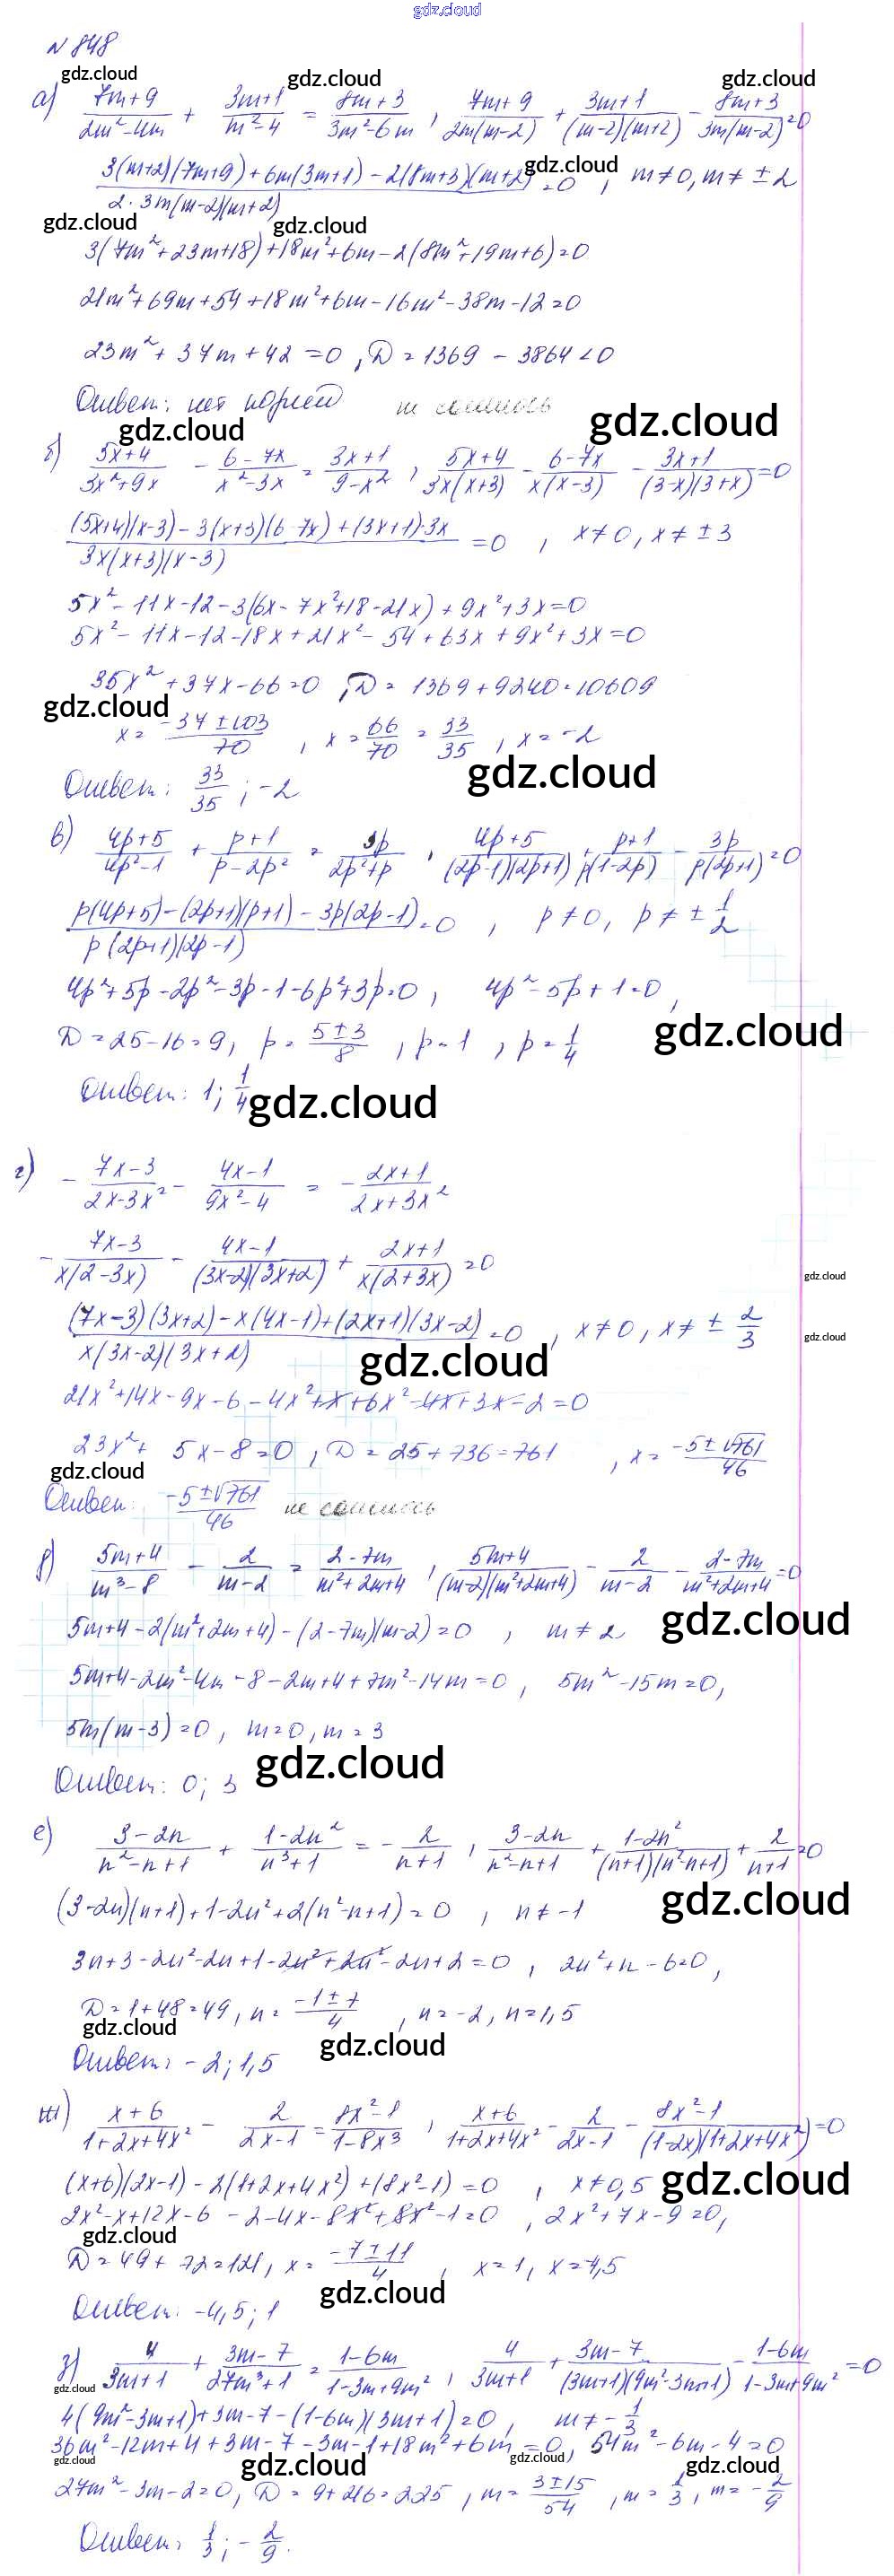 gdz.cloud
N 848
gdz.cloud gdz.cloud gdz.cloud
а) (7m+9)/(2m²-4m) + (3m+1)/(m²-4) = (8m+3)/(3m²-6m), (7m+9)/(2m(m-2)) + (3m+1)/((m-2)(m+2)) - (8m+3)/(3m(m-2)) = 0
gdz.cloud
(3(m+2)(7m+9)+6m(3m+1)-2(8m+3)(m+2))/(2·3m(m-2)(m+2)) = 0, m≠0, m≠±2
gdz.cloud gdz.cloud
3(7m²+23m+18)+18m²+6m-2(8m²+19m+6)=0
21m²+69m+54+18m²+6m-16m²-38m-12=0
23m²+37m+42=0, D=1369-3864<0
Ответ: нет корней не сошлось
gdz.cloud gdz.cloud
б) (5x+4)/(3x²+9x) - (6-7x)/(x²-3x) = (3x+1)/(9-x²), (5x+4)/(3x(x+3)) - (6-7x)/(x(x-3)) - (3x+1)/((3-x)(3+x)) = 0
((5x+4)(x-3)-3(x+3)(6-7x)+(3x+1)·3x)/(3x(x+3)(x-3)) = 0, x≠0, x≠±3
5x²-11x-12-3(6x-7x²+18-21x)+9x²+3x=0
5x²-11x-12-18x+21x²-54+63x+9x²+3x=0
35x²+37x-66=0, D=1369+9240=10609
gdz.cloud
x=(-37±103)/70, x=66/70=33/35, x=-2
gdz.cloud
Ответ: 33/35; -2
в) (4p+5)/(4p²-1) + (p+1)/(p-2p²) = 3p/(2p²+p), (4p+5)/((2p-1)(2p+1)) + (p+1)/(p(1-2p)) - 3p/(p(2p+1)) = 0
(p(4p+5)-(2p+1)(p+1)-3p(2p-1))/(p(2p+1)(2p-1)) = 0, p≠0, p≠±1/2
4p²+5p-2p²-3p-1-6p²+3p=0, 4p²-5p+1=0,
gdz.cloud
D=25-16=9, p=(5±3)/8, p=1, p=1/4
Ответ: 1; 1/4
gdz.cloud
г) -(7x-3)/(2x-3x²) - (4x-1)/(9x²-4) = -(2x+1)/(2x+3x²)
-(7x-3)/(x(2-3x)) - (4x-1)/((3x-2)(3x+2)) + (2x+1)/(x(2+3x)) = 0
gdz.cloud
((7x-3)(3x+2)-x(4x-1)+(2x+1)(3x-2))/(x(3x-2)(3x+2)) = 0, x≠0, x≠±2/3
gdz.cloud
gdz.cloud
21x²+14x-9x-6-4x²+x+6x²-4x+3x-2=0
23x²+5x-8=0, D=25+736=761, x=(-5±√761)/46
gdz.cloud
Ответ: (-5±√761)/46 не сошлось
д) (5m+4)/(m³-8) - 2/(m-2) = (2-7m)/(m²+2m+4), (5m+4)/((m-2)(m²+2m+4)) - 2/(m-2) - (2-7m)/(m²+2m+4) = 0
gdz.cloud
5m+4-2(m²+2m+4)-(2-7m)(m-2)=0, m≠2
5m+4-2m²-4m-8-2m+4+7m²-14m=0, 5m²-15m=0,
5m(m-3)=0, m=0, m=3
gdz.cloud
Ответ: 0; 3
е) (3-2n)/(n²-n+1) + (1-2n²)/(n³+1) = -2/(n+1), (3-2n)/(n²-n+1) + (1-2n²)/((n+1)(n²-n+1)) + 2/(n+1) = 0
gdz.cloud
(3-2n)(n+1)+1-2n²+2(n²-n+1)=0, n≠-1
3n+3-2n²-2n+1-2n²+2n²-2n+2=0, 2n²+n-6=0,
D=1+48=49, n=(-1±7)/4, n=-2, n=1,5
gdz.cloud gdz.cloud
Ответ: -2; 1,5
ж) (x+6)/(1+2x+4x²) - 2/(2x-1) = (8x²-1)/(1-8x³), (x+6)/(1+2x+4x²) - 2/(2x-1) - (8x²-1)/((1-2x)(1+2x+4x²)) = 0
(x+6)(2x-1)-2(1+2x+4x²)+(8x²-1)=0, x≠0,5
gdz.cloud
2x²-x+12x-6-2-4x-8x²+8x²-1=0, 2x²+7x-9=0,
gdz.cloud
D=49+72=121, x=(-7±11)/4, x=1, x=-4,5
gdz.cloud
Ответ: -4,5; 1
з) 4/(3m+1) + (3m-7)/(27m³+1) = (1-6m)/(1-3m+9m²), 4/(3m+1) + (3m-7)/((3m+1)(9m²-3m+1)) - (1-6m)/(1-3m+9m²) = 0
gdz.cloud
4(9m²-3m+1)+3m-7-(1-6m)(3m+1)=0, m≠-1/3
36m²-12m+4+3m-7-3m-1+18m²+6m=0, 54m²-6m-4=0
gdz.cloud gdz.cloud gdz.cloud gdz.cloud
27m²-3m-2=0, D=9+216=225, m=(3±15)/54, m=1/3, m=-2/9
Ответ: 1/3; -2/9.